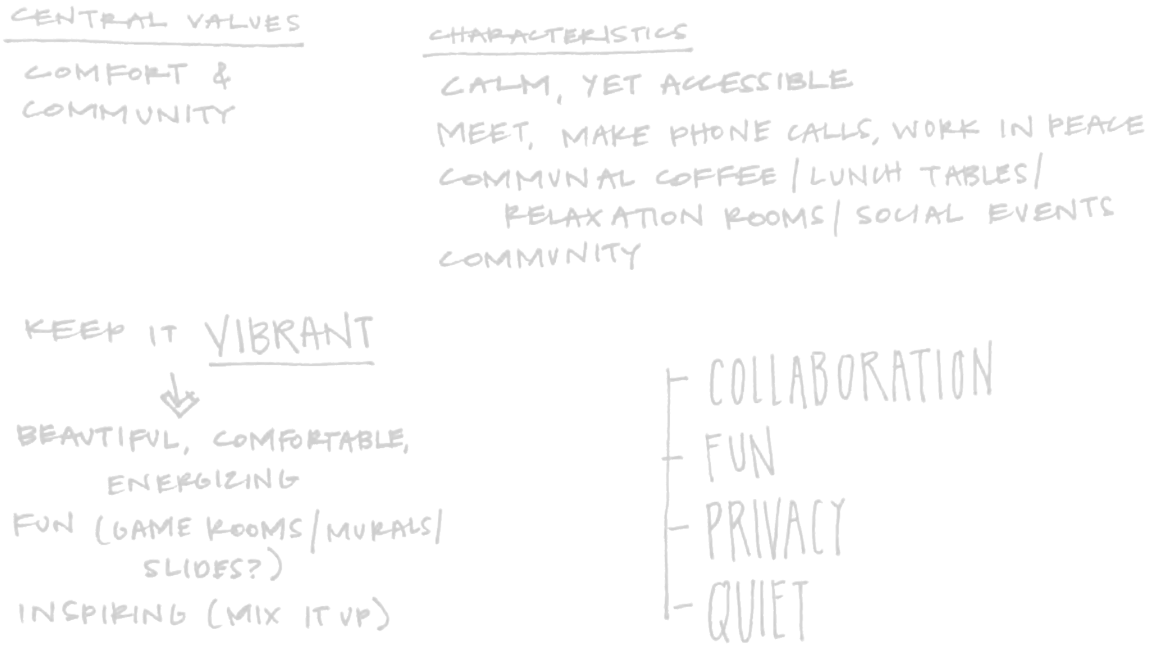 CENTRAL VALUES
COMFORT &
COMMUNITY
CHARACTERISTICS
CALM, YET ACCESSIBLE
MEET, MAKE PHONE CALLS, WORK IN PEACE
COMMUNAL COFFEE / LUNCH TABLES /
RELAXATION ROOMS / SOCIAL EVENTS
COMMUNITY
KEEP IT VIBRANT
BEAUTIFUL, COMFORTABLE,
ENERGIZING
FUN (GAME ROOMS / MURALS /
SLIDES?)
INSPIRING (MIX IT UP)
COLLABORATION
FUN
PRIVACY
QUIET